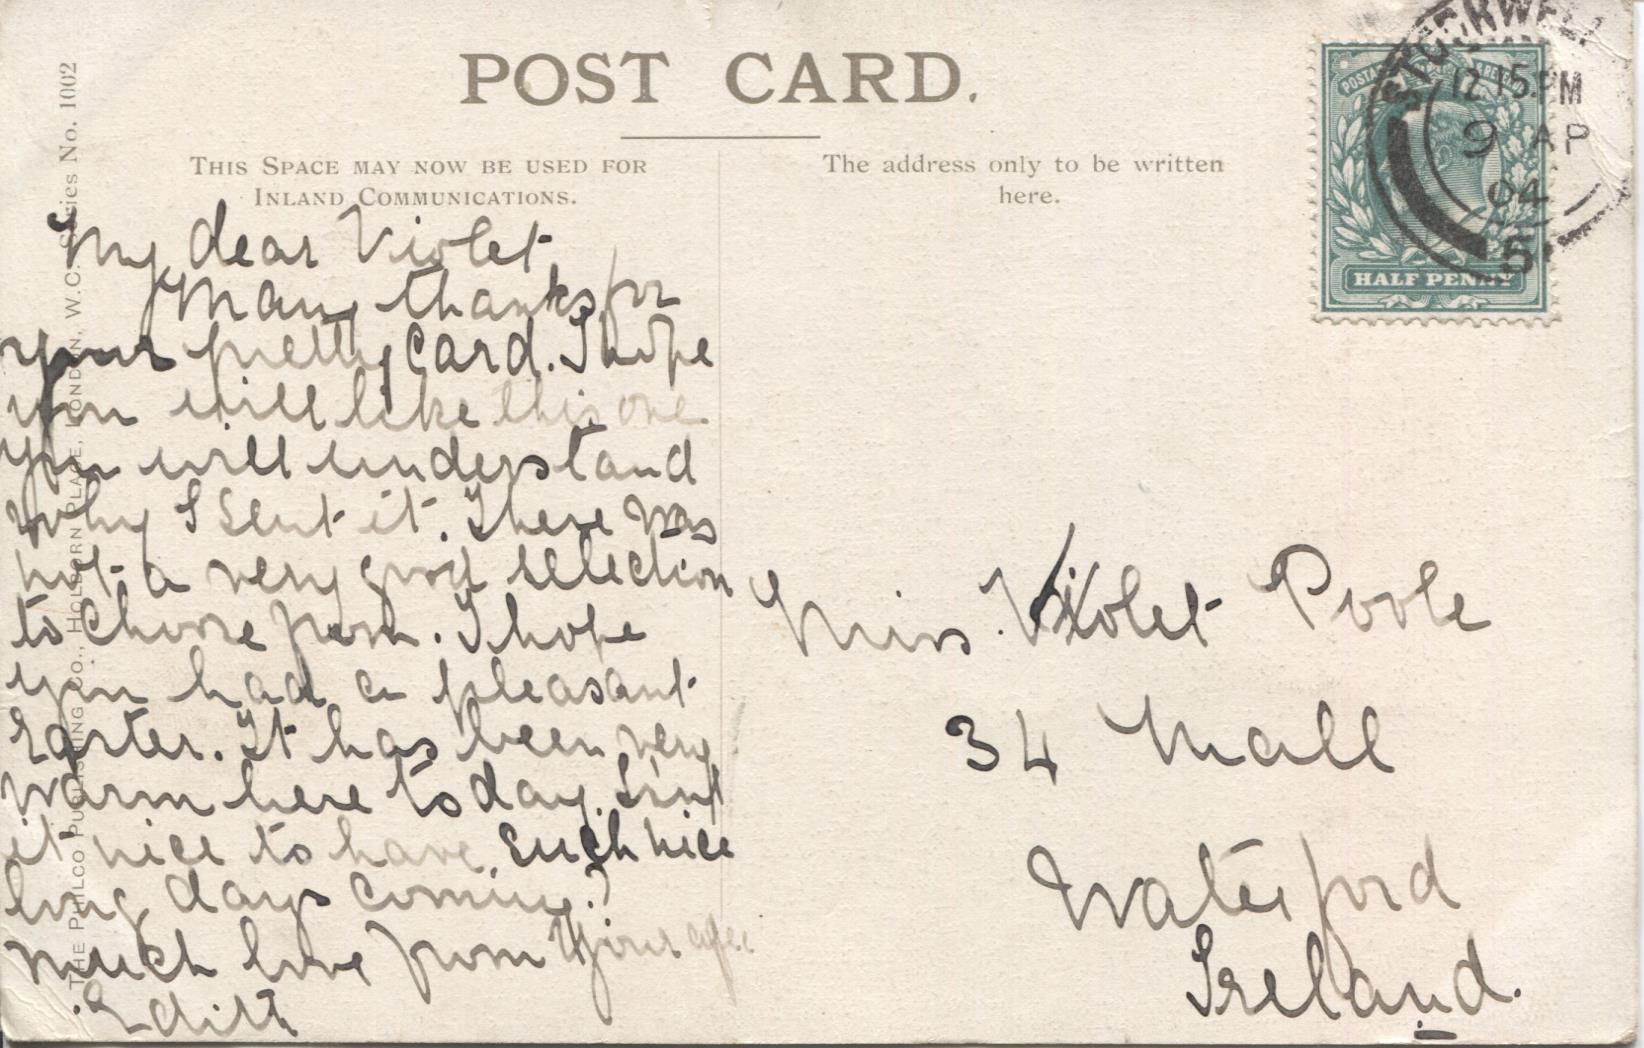 POST CARD.
THIS SPACE MAY NOW BE USED FOR
INLAND COMMUNICATIONS.
The address only to be written
here.
STOCKWELL
12.15.PM
9 AP
04
5
HALF PENNY
THE PHILCO PUBLISHING CO., HOLBORN PLACE, LONDON, W.C. Series No. 1002
My dear Violet
Many thanks for
your pretty card. I hope
you will like this one
you will understand
why I sent it. There was
not a very good selection
to choose from. I hope
you had a pleasant
Easter. It has been very
warm here to day. Isn't
it nice to have such nice
long days coming?
much love from Your affec
Edith
Miss Violet Poole
34 Mall
Waterford
Ireland.